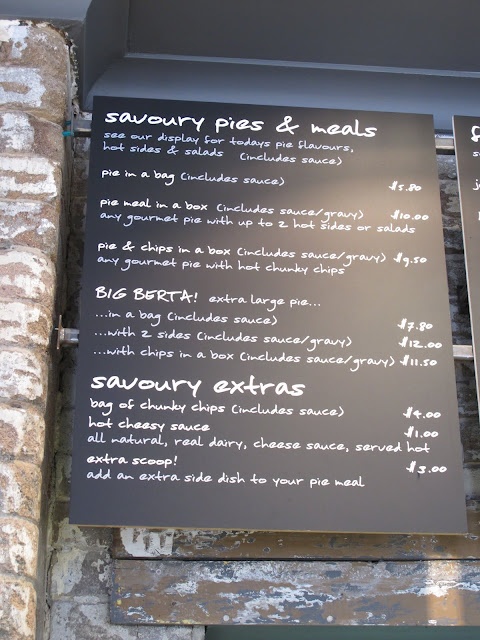 savoury pies & meals
see our display for todays pie flavours,
hot sides & salads (includes sauce)
pie in a bag (includes sauce) $5.80
pie meal in a box (includes sauce/gravy) $10.00
any gourmet pie with up to 2 hot sides or salads
pie & chips in a box (includes sauce/gravy) $9.50
any gourmet pie with hot chunky chips
BIG BERTA! extra large pie...
...in a bag (includes sauce) $7.80
...with 2 sides (includes sauce/gravy) $12.00
...with chips in a box (includes sauce/gravy) $11.50
savoury extras
bag of chunky chips (includes sauce) $4.00
hot cheesy sauce $1.00
all natural, real dairy, cheese sauce, served hot
extra scoop! $3.00
add an extra side dish to your pie meal